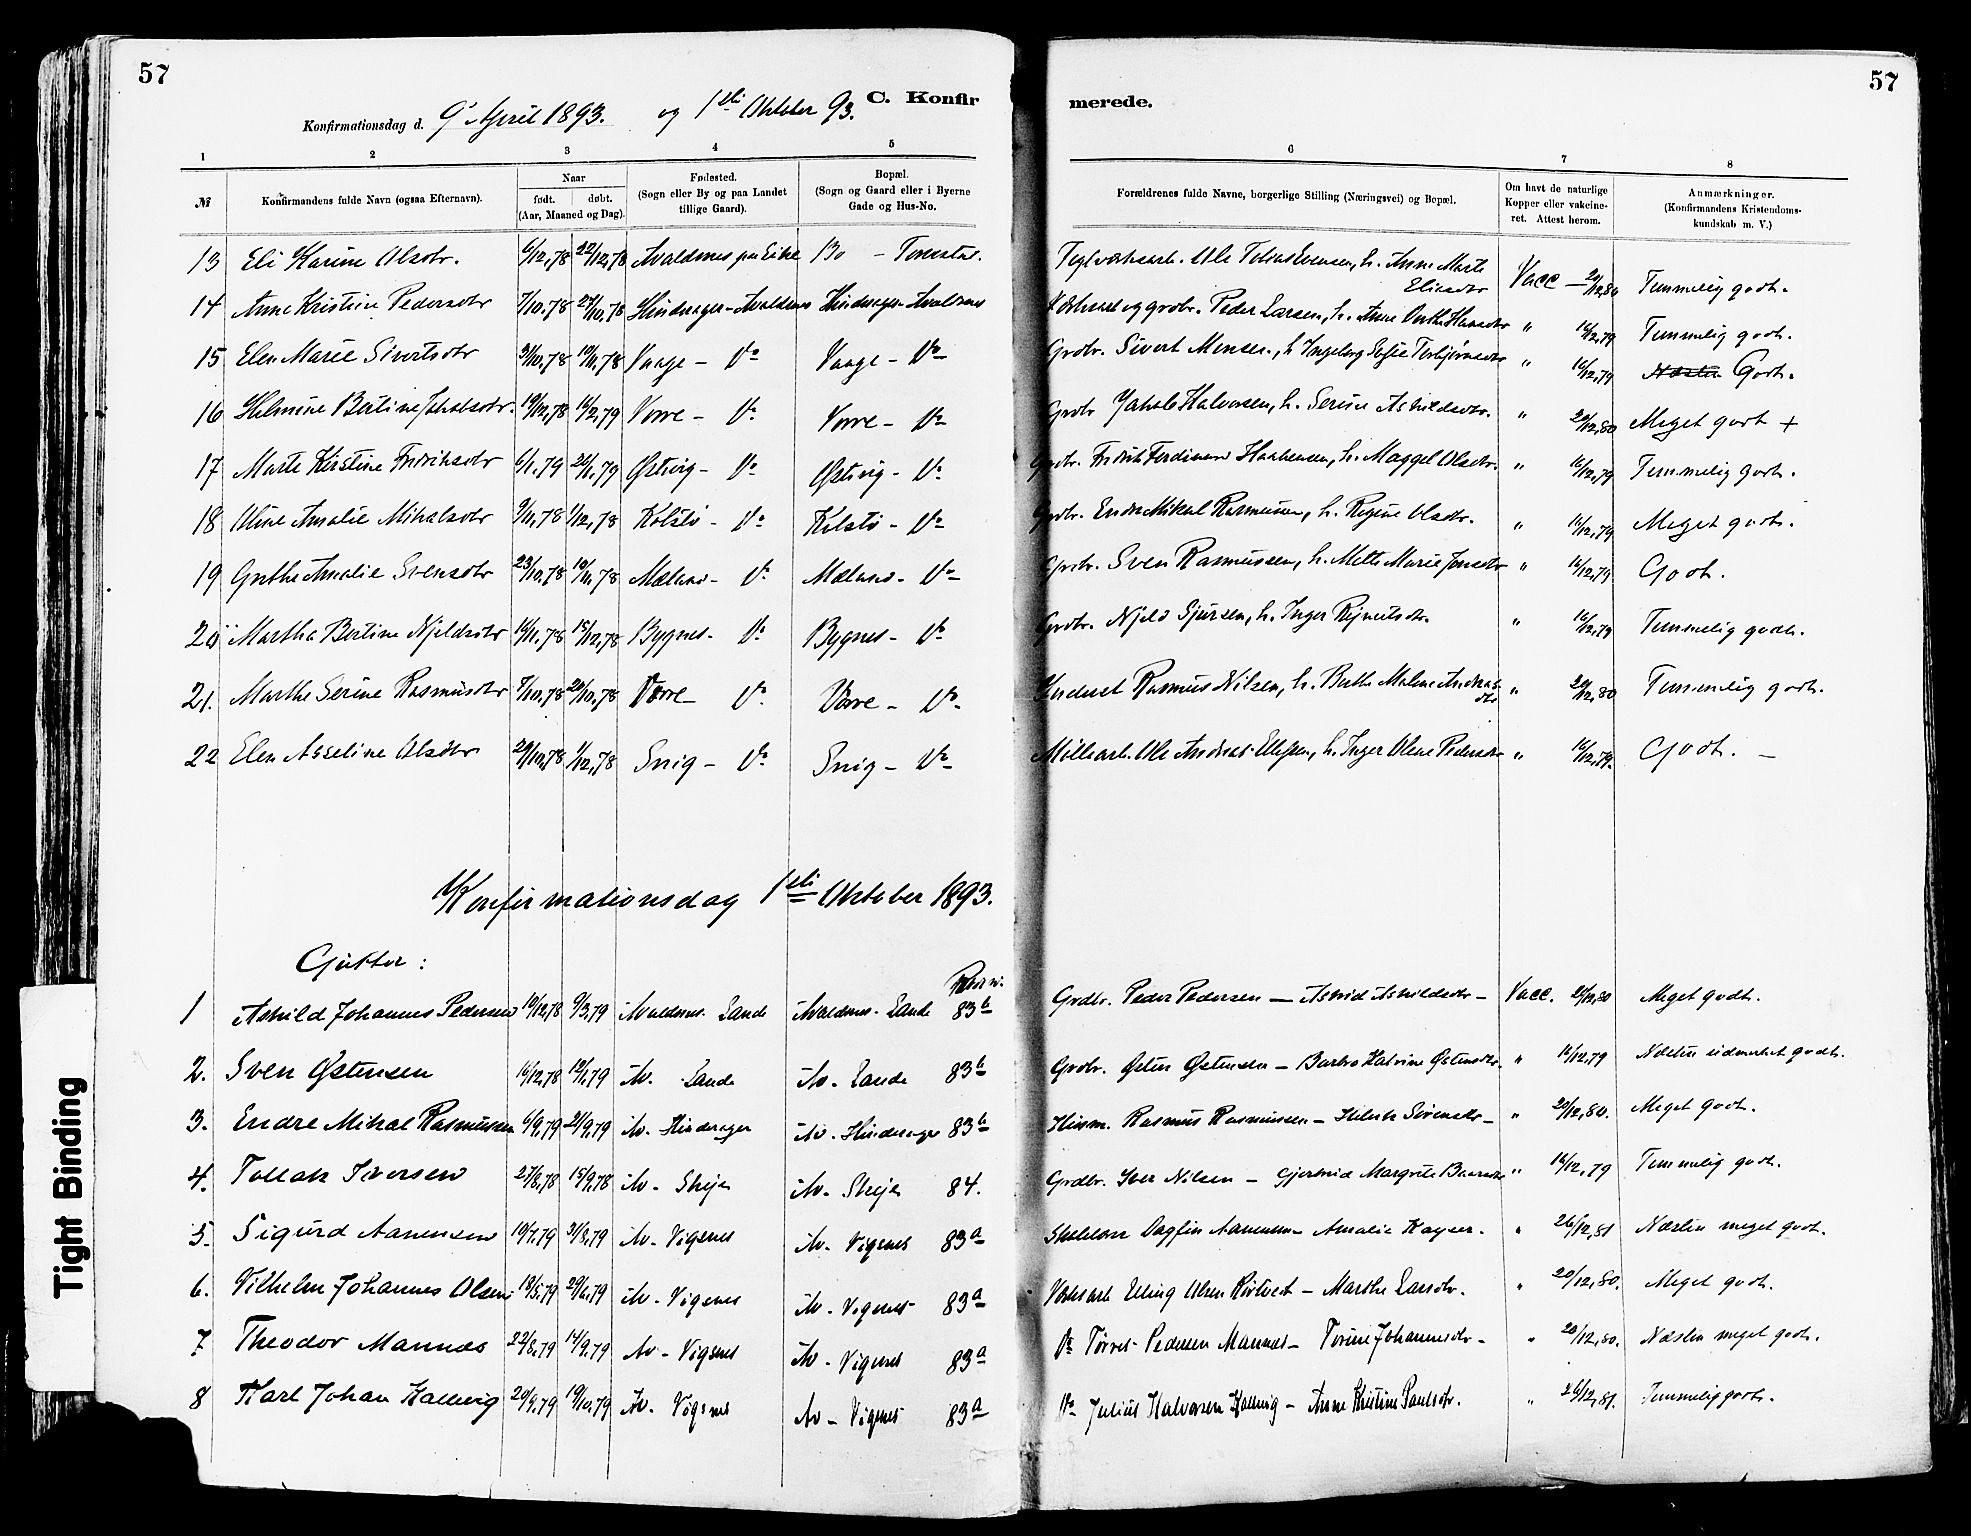 57
57
Konfirmationsdag d. 9' April 1893. og 1ste Oktober 93. C. Konfir
merede.
1 2 3 4 5
6 7 8
№ Konfirmandens fulde Navn (ogsaa Efternavn). Naar født. døbt. (Aar, Maaned og Dag). Fødested. (Sogn eller By og paa Landet tillige Gaard). Bopæl. (Sogn og Gaard eller i Byerne Gade og Hus-No.
Forældrenes fulde Navne, borgerlige Stilling (Næringsvei) og Bopæl. Om havt de naturlige Kopper eller vakcineret. Attest herom. Anmærkninger. (Konfirmandens Kristendomskundskab m. V.)
13 Eli Karine Olsdtr. 6/12,78 22/12,78 Avaldsnes
Vacc Temmelig godt.
14 Anne Kristine Pedersdtr 7/10,78 27/10,78 Hinderager - Avaldsnes Hinderager - Avaldsnes
Peder Larsen, h. Anne " 16/12,79 Temmelig godt.
15 Elen Marie Sivertsdtr 10/11,78 Vaage - Do Vaage - Do
Grdbr. Sivert Monsen, h Ingeborg Sofie Torbjørnsdtr " 16/12,79 Godt.
16 Helmine Bertine Jakobsdtr. 19/12,78 16/2,79 Vorre - Do Vorre - Do
Grdbr Jakob Halvorsen, h. Serine Askildsdtr. " 20/12,80 Meget godt +
17 Marte Kirstine Fredriksdtr 6/1,79 26/1,79 Østvig - Do Østvig - Do
Grdbr. Fredrik Ferdinand Haakensen, h. Maggel Olsdtr. " 16/12,79 Temmelig godt.
18 Oline Amalie Mikalsdtr 9/11,78 1/12,78 Kolstø - Do Kolstø - Do
Grdbr. Endre Mikal Rasmussen, h. Regine Olsdtr. " 16/12,79 Meget godt.
19 Grethe Amalie Svensdtr 23/10,78 10/11,78 Mæland - Do Mæland - Do
Grdbr. Sven Rasmussen, h. Mette Marie Jonsdtr " 16/12,79 Godt.
20 Martha Bertine Njeldsdtr 16/11,78 15/12,78 Bygnes - Do Bygnes - Do
Grdbr. Njeld Sjursen, h. Inger " 16/12,79 Temmelig godt.
21. Marthe Serine Rasmusdtr 7/10,78 20/10,78 Vorre Do Vorre - Do
Rasmus Nilsen, h. Berthe Malene Andreasdtr " 20/12,80 Temmelig godt.
22 Elen Asseline Olsdtr 29/10,78 1/12,78 Snig - Do Snig - Do
Møllearb. Ole Andreas Ellefsen, h. Inger Olene Pedersdtr " 16/12,79. Godt. -
Konfirmationsdag 1ste Oktober 1893.
Gutter:
1 Askild Johannes Pedersen 19/12,78 9/3,79 Avaldsnes. Sande Avaldsnes. Sande 83b
Grdbr. Peder Pedersen - Astrid Askildsdtr - Vacc. Meget godt.
2. Sven Østensen 16/12,78 12/1,79 Av. Sande Av. Sande 83b
Grdbr. Østen Østensen - Barbro Katrine Østensdtr. " 16/12,79 Næsten udmerket godt.
3. Endre Mikal Rasmussen 6/9,79 21/9,79 Av. Hinderager Av. Hinderager 83b
Husm. Rasmus Rasmussen - " 20/12,80. Meget godt.
4. Tollak Iversen 27/8,78 15/9,78 Av - Skeje Av - Skeje 84.
Grdbr. Iver Nilsen - Gjertrud Margrete " 16/12,79 Temmelig godt.
5. Sigurd Aanensen 10/7,79 31/8,79 Av - Vigsnes Av - Vigsnes 83a
Dagfin Aanensen - Amalie Kayser. " 26/12,81 Næsten meget godt.
6. Vilhelm Johannes Olsen 18/5,79 29/6,79 Av - Vigsnes Av - Vigsnes 83a
Elling Olsen - Marthe Larsdtr. " 20/12,80. Meget godt.
7. Theodor Mannes 22/8,79 14/9,79 Av - Vigsnes Av - Vigsnes 83a
Do Tørres Pedersen Mannes - Torine Johannesdtr - " 20/12,80. Næsten meget godt.
8 Karl Johan Kallevig 20/9,79 19/10,79 Av. Vigsnes Av - Vigsnes 83a
Do Julius Halvorsen Kallevig - Anne Kristine Paulsdtr. " 26/12,81. Temmelig godt.
Tight Binding